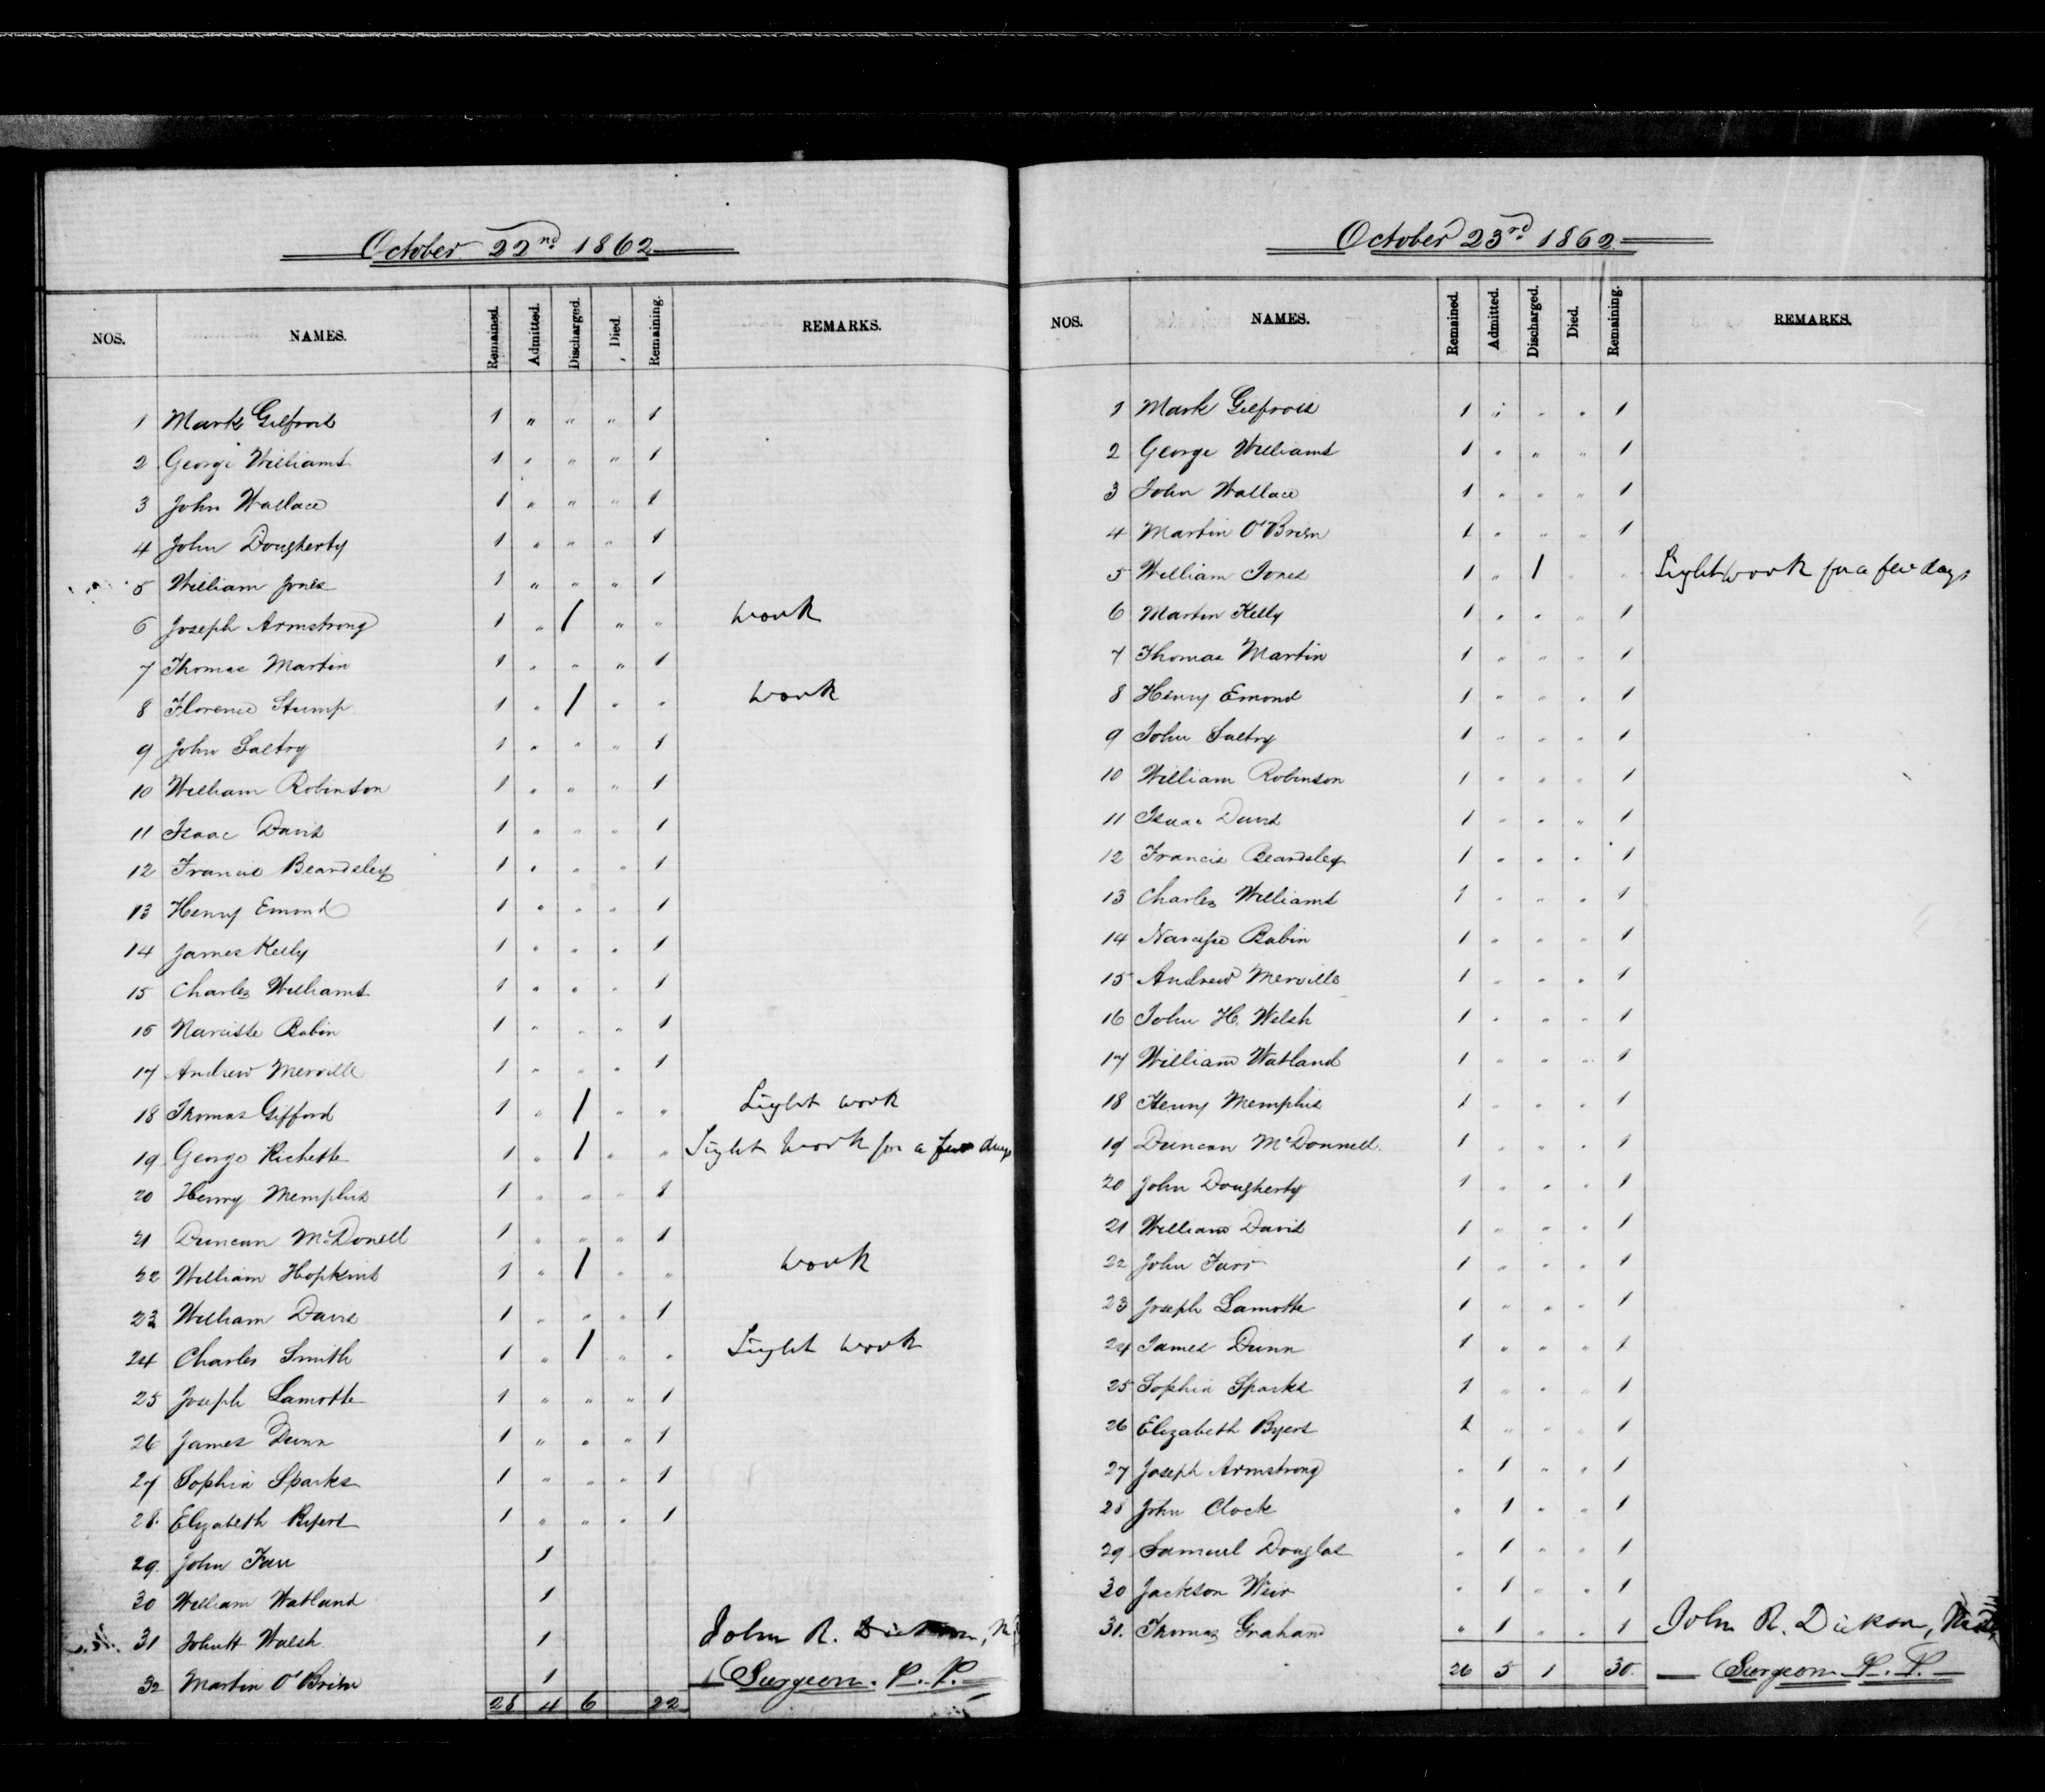 October 22nd 1862
NOS. NAMES. Remained. Admitted. Discharged. Died. Remaining. REMARKS.
1 Mark Gilfrois 1 " " " 1
2 George Williams 1 " " " 1
3 John Wallace 1 " " " 1
4 John Dougherty 1 " " " 1
5 William Jones 1 " " " 1
6 Joseph Armstrong 1 " 1 " " Work
7 Thomas Martin 1 " " " 1
8 Florence Stump 1 " 1 " " Work
9 John Saltry 1 " " " 1
10 William Robinson 1 " " " 1
11 Isaac David 1 " " " 1
12 Francis Beardsley 1 " " " 1
13 Henry Emond 1 " " " 1
14 James Kelly 1 " " " 1
15 Charles Williams 1 " " " 1
16 Narcisse Babin 1 " " " 1
17 Andrew Merville 1 " " " 1
18 Thomas Gifford 1 " 1 " " Light work
19 George Richette 1 " 1 " " Light Work for a few days
20 Henry Memphis 1 " " " 1
21 Duncan McDonell 1 " " " 1
22 William Hopkins 1 " 1 " " Work
23 William David 1 " " " 1
24 Charles Smith 1 " 1 " " Light work
25 Joseph Lamotte 1 " " " 1
26 James Dunn 1 " " " 1
27 Sophia Sparks 1 " " " 1
28. Elizabeth Byers 1 " " " 1
29. John Farr 1
30 William Watland 1
31 John H Walsh 1 John R. Dickson, M.
32 Martin O'Brien 1 Surgeon. P. P.
28 4 6 22
October 23rd 1862
NOS. NAMES. Remained. Admitted. Discharged. Died. Remaining. REMARKS.
1 Mark Gilfrois 1 " " " 1
2 George Williams 1 " " " 1
3 John Wallace 1 " " " 1
4 Martin O'Brien 1 " " " 1
5 William Jones 1 " 1 " " Light work for a few days
6 Martin Kelly 1 " " " 1
7 Thomas Martin 1 " " " 1
8 Henry Emond 1 " " " 1
9 John Saltry 1 " " " 1
10 William Robinson 1 " " " 1
11 Isaac David 1 " " " 1
12 Francis Beardsley 1 " " " 1
13 Charles Williams 1 " " " 1
14 Narcisse Babin 1 " " " 1
15 Andrew Merville 1 " " " 1
16 John H. Welsh 1 " " " 1
17 William Watland 1 " " " 1
18 Henry Memphis 1 " " " 1
19 Duncan McDonnell 1 " " " 1
20 John Dougherty 1 " " " 1
21 William David 1 " " " 1
22 John Farr 1 " " " 1
23 Joseph Lamotte 1 " " " 1
24 James Dunn 1 " " " 1
25 Sophia Sparks 1 " " " 1
26 Elizabeth Byers 1 " " " 1
27 Joseph Armstrong " 1 " " 1
28 John Clock " 1 " " 1
29 Samuel Douglas " 1 " " 1
30 Jackson Weir " 1 " " 1
31. Thomas Graham " 1 " " 1 John R. Dickson,
26 5 1 30. Surgeon P. P.